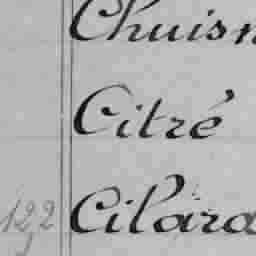 Chuisn
Citré
122 Cilara